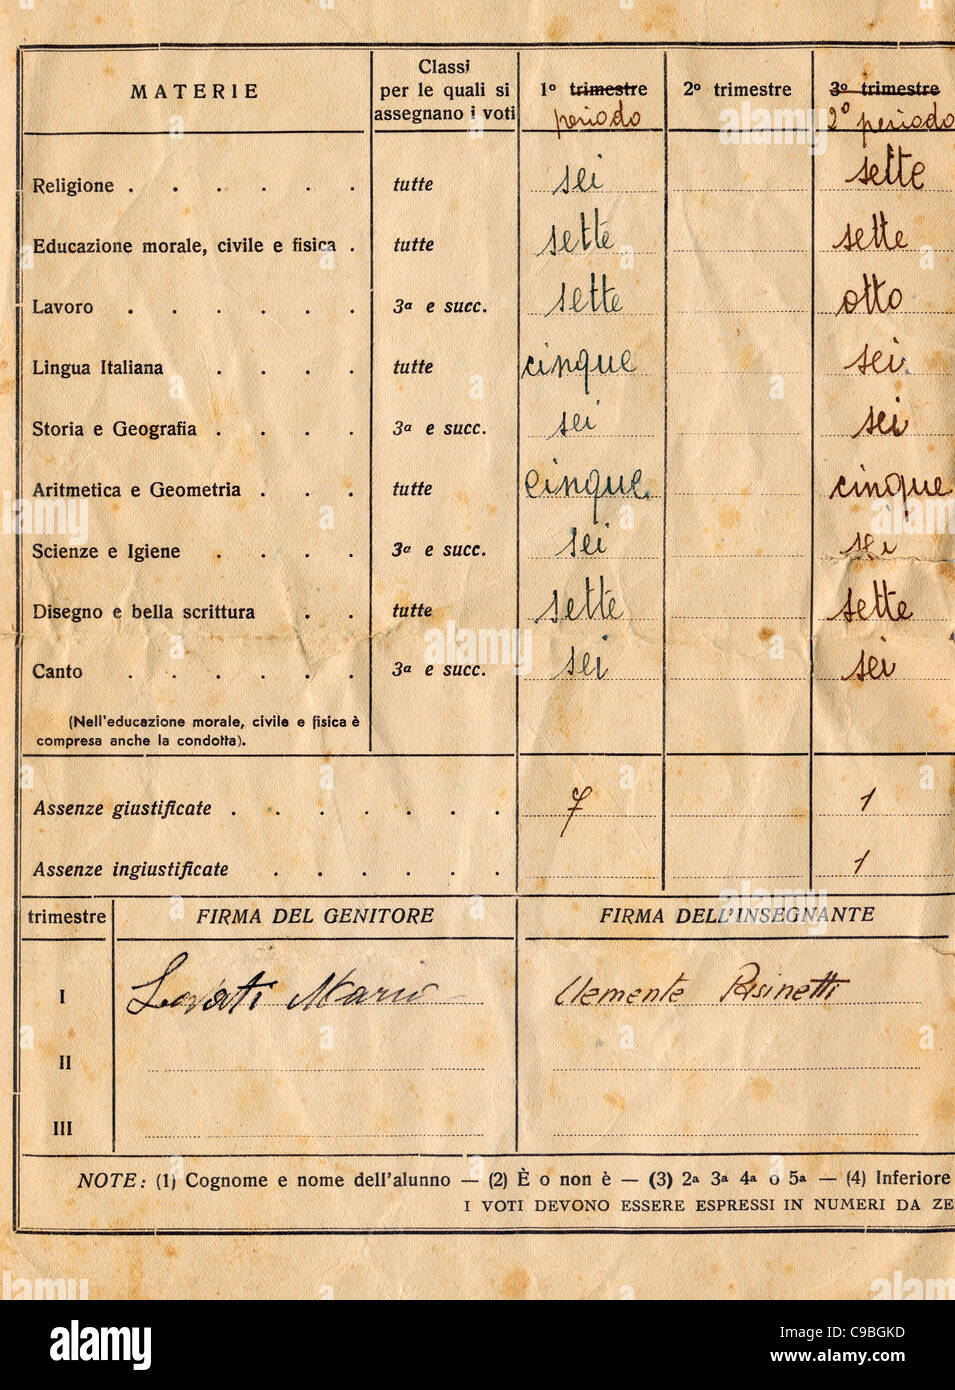 MATERIE Classi per le quali si assegnano i voti 1º trimestre periodo 2º trimestre 3º trimestre 2º periodo
Religione . . . . . . tutte sei sette
Educazione morale, civile e fisica . tutte sette sette
Lavoro . . . . . . 3ª e succ. sette otto
Lingua Italiana . . . . tutte cinque sei
Storia e Geografia . . . . 3ª e succ. sei sei
Aritmetica e Geometria . . . tutte cinque cinque
Scienze e Igiene . . . . 3ª e succ. sei sei
Disegno e bella scrittura . . tutte sette sette
Canto . . . . . . 3ª e succ. sei sei
(Nell'educazione morale, civile e fisica è
compresa anche la condotta).
Assenze giustificate . . . . . . . 7 1
Assenze ingiustificate . . . . . . 1
trimestre FIRMA DEL GENITORE FIRMA DELL'INSEGNANTE
I Lovati Mario Clemente Risinetti
II
III
NOTE: (1) Cognome e nome dell'alunno — (2) È o non è — (3) 2ª 3ª 4ª o 5ª — (4) Inferiore
I VOTI DEVONO ESSERE ESPRESSI IN NUMERI DA ZE
alamy
Image ID: C9BGKD
www.alamy.com